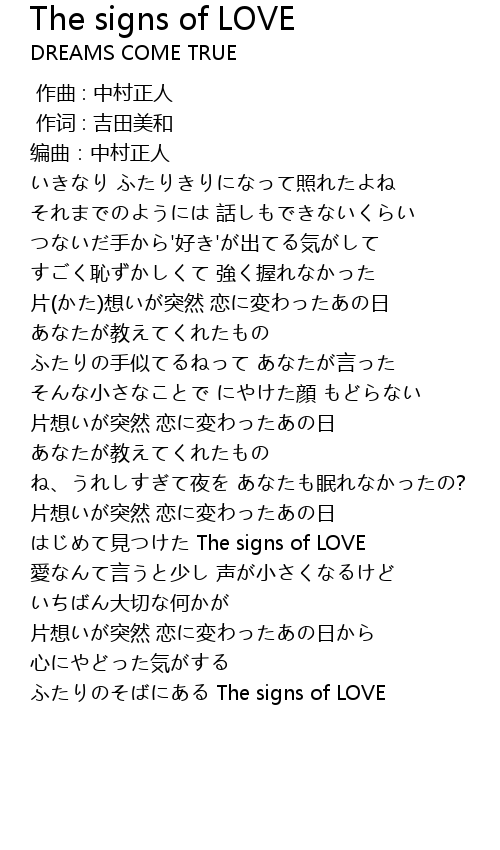 The signs of LOVE
DREAMS COME TRUE
作曲 : 中村正人
作词 : 吉田美和
编曲：中村正人
いきなり ふたりきりになって照れたよね
それまでのようには 話しもできないくらい
つないだ手から'好き'が出てる気がして
すごく恥ずかしくて 強く握れなかった
片(かた)想いが突然 恋に変わったあの日
あなたが教えてくれたもの
ふたりの手似てるねって あなたが言った
そんな小さなことで にやけた顔 もどらない
片想いが突然 恋に変わったあの日
あなたが教えてくれたもの
ね、うれしすぎて夜を あなたも眠れなかったの?
片想いが突然 恋に変わったあの日
はじめて見つけた The signs of LOVE
愛なんて言うと少し 声が小さくなるけど
いちばん大切な何かが
片想いが突然 恋に変わったあの日から
心にやどった気がする
ふたりのそばにある The signs of LOVE